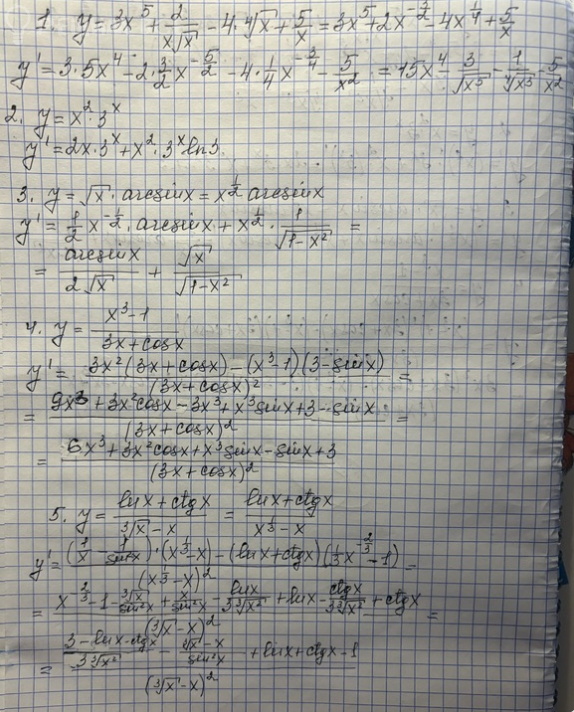 1. y = 3x^5 + 2/(x√x) - 4·∜x + 5/x = 3x^5 + 2x^(-3/2) - 4x^(1/4) + 5/x
y' = 3·5x^4 - 2·3/2 x^(-5/2) - 4·1/4 x^(-3/4) - 5/x^2 = 15x^4 - 3/√x^5 - 1/∜x^3 - 5/x^2
2. y = x^2·3^x
y' = 2x·3^x + x^2·3^x ln3.
3. y = √x·arcsinx = x^(1/2) arcsinx
y' = 1/2 x^(-1/2)·arcsinx + x^(1/2)·1/√(1-x^2) =
= arcsinx/(2√x) + √x/√(1-x^2)
4. y = (x^3-1)/(3x+cosx)
y' = (3x^2(3x+cosx) - (x^3-1)(3-sinx))/(3x+cosx)^2 =
= (9x^3 + 3x^2cosx - 3x^3 + x^3sinx + 3 - sinx)/(3x+cosx)^2 =
= (6x^3 + 3x^2cosx + x^3sinx - sinx + 3)/(3x+cosx)^2
5. y = (lnx+ctgx)/(∛x-x) = (lnx+ctgx)/(x^(1/3)-x)
y' = ((1/x - 1/sin^2x)·(x^(1/3)-x) - (lnx+ctgx)(1/3 x^(-2/3) - 1))/(x^(1/3)-x)^2 =
= (x^(-2/3) - 1 - ∛x/sin^2x + x/sin^2x - lnx/(3∛x^2) + lnx - ctgx/(3∛x^2) + ctgx)/(∛x-x)^2 =
= ((3-lnx-ctgx)/(3∛x^2) - (∛x-x)/sin^2x + lnx + ctgx - 1)/(∛x-x)^2